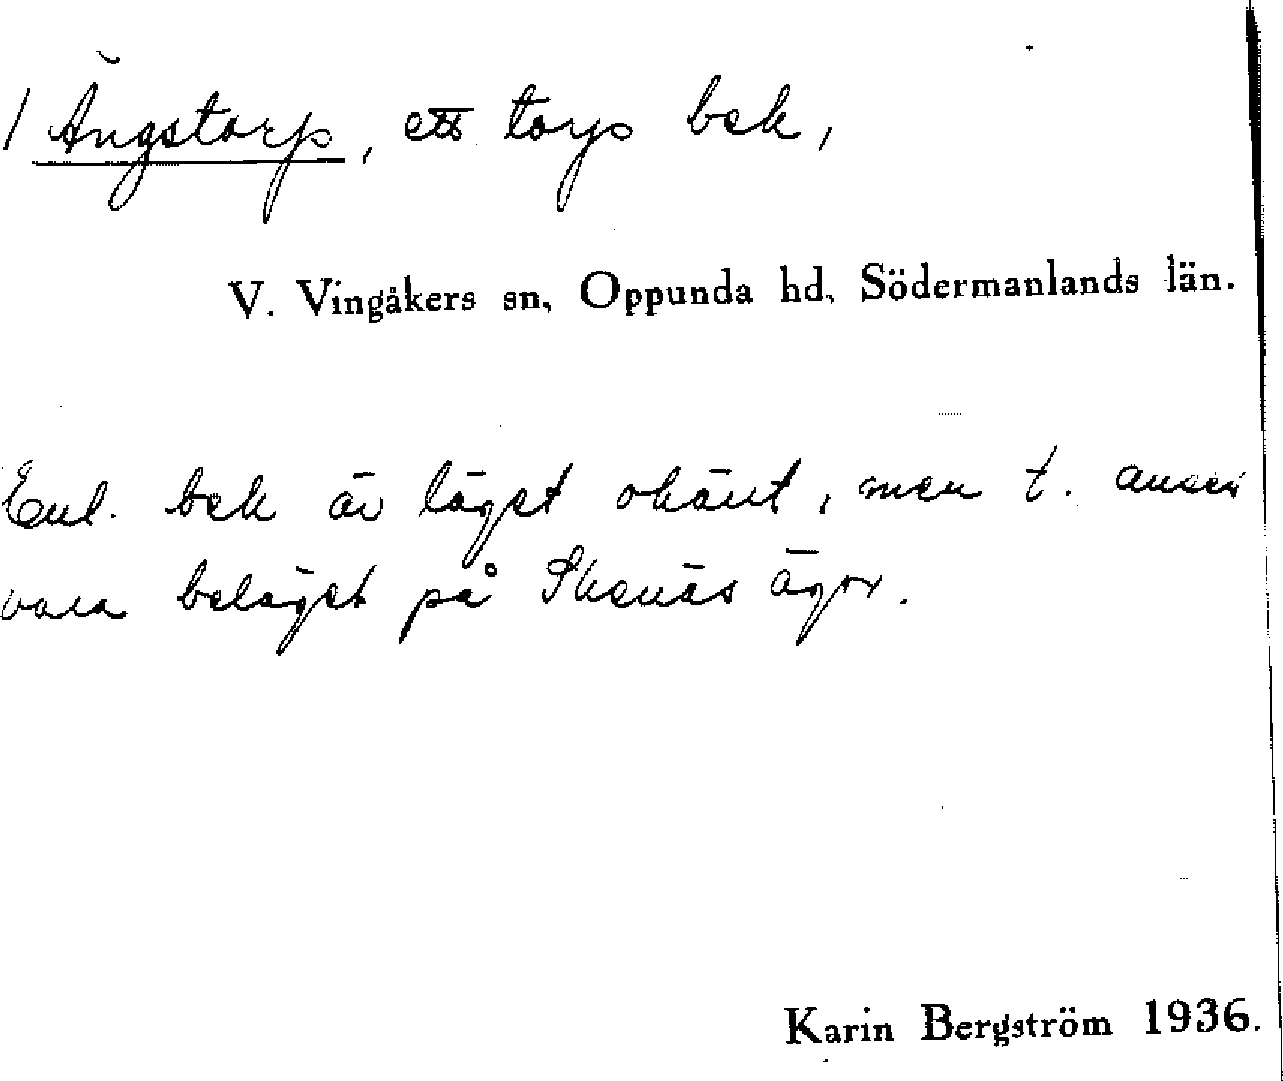 / Ängstorp, ett torps bek,
V. Vingåkers sn, Oppunda hd, Södermanlands län.
Enl. bek är läget okänt, men t. anses
vara beläget på Skenäs ägor.
Karin Bergström 1936.